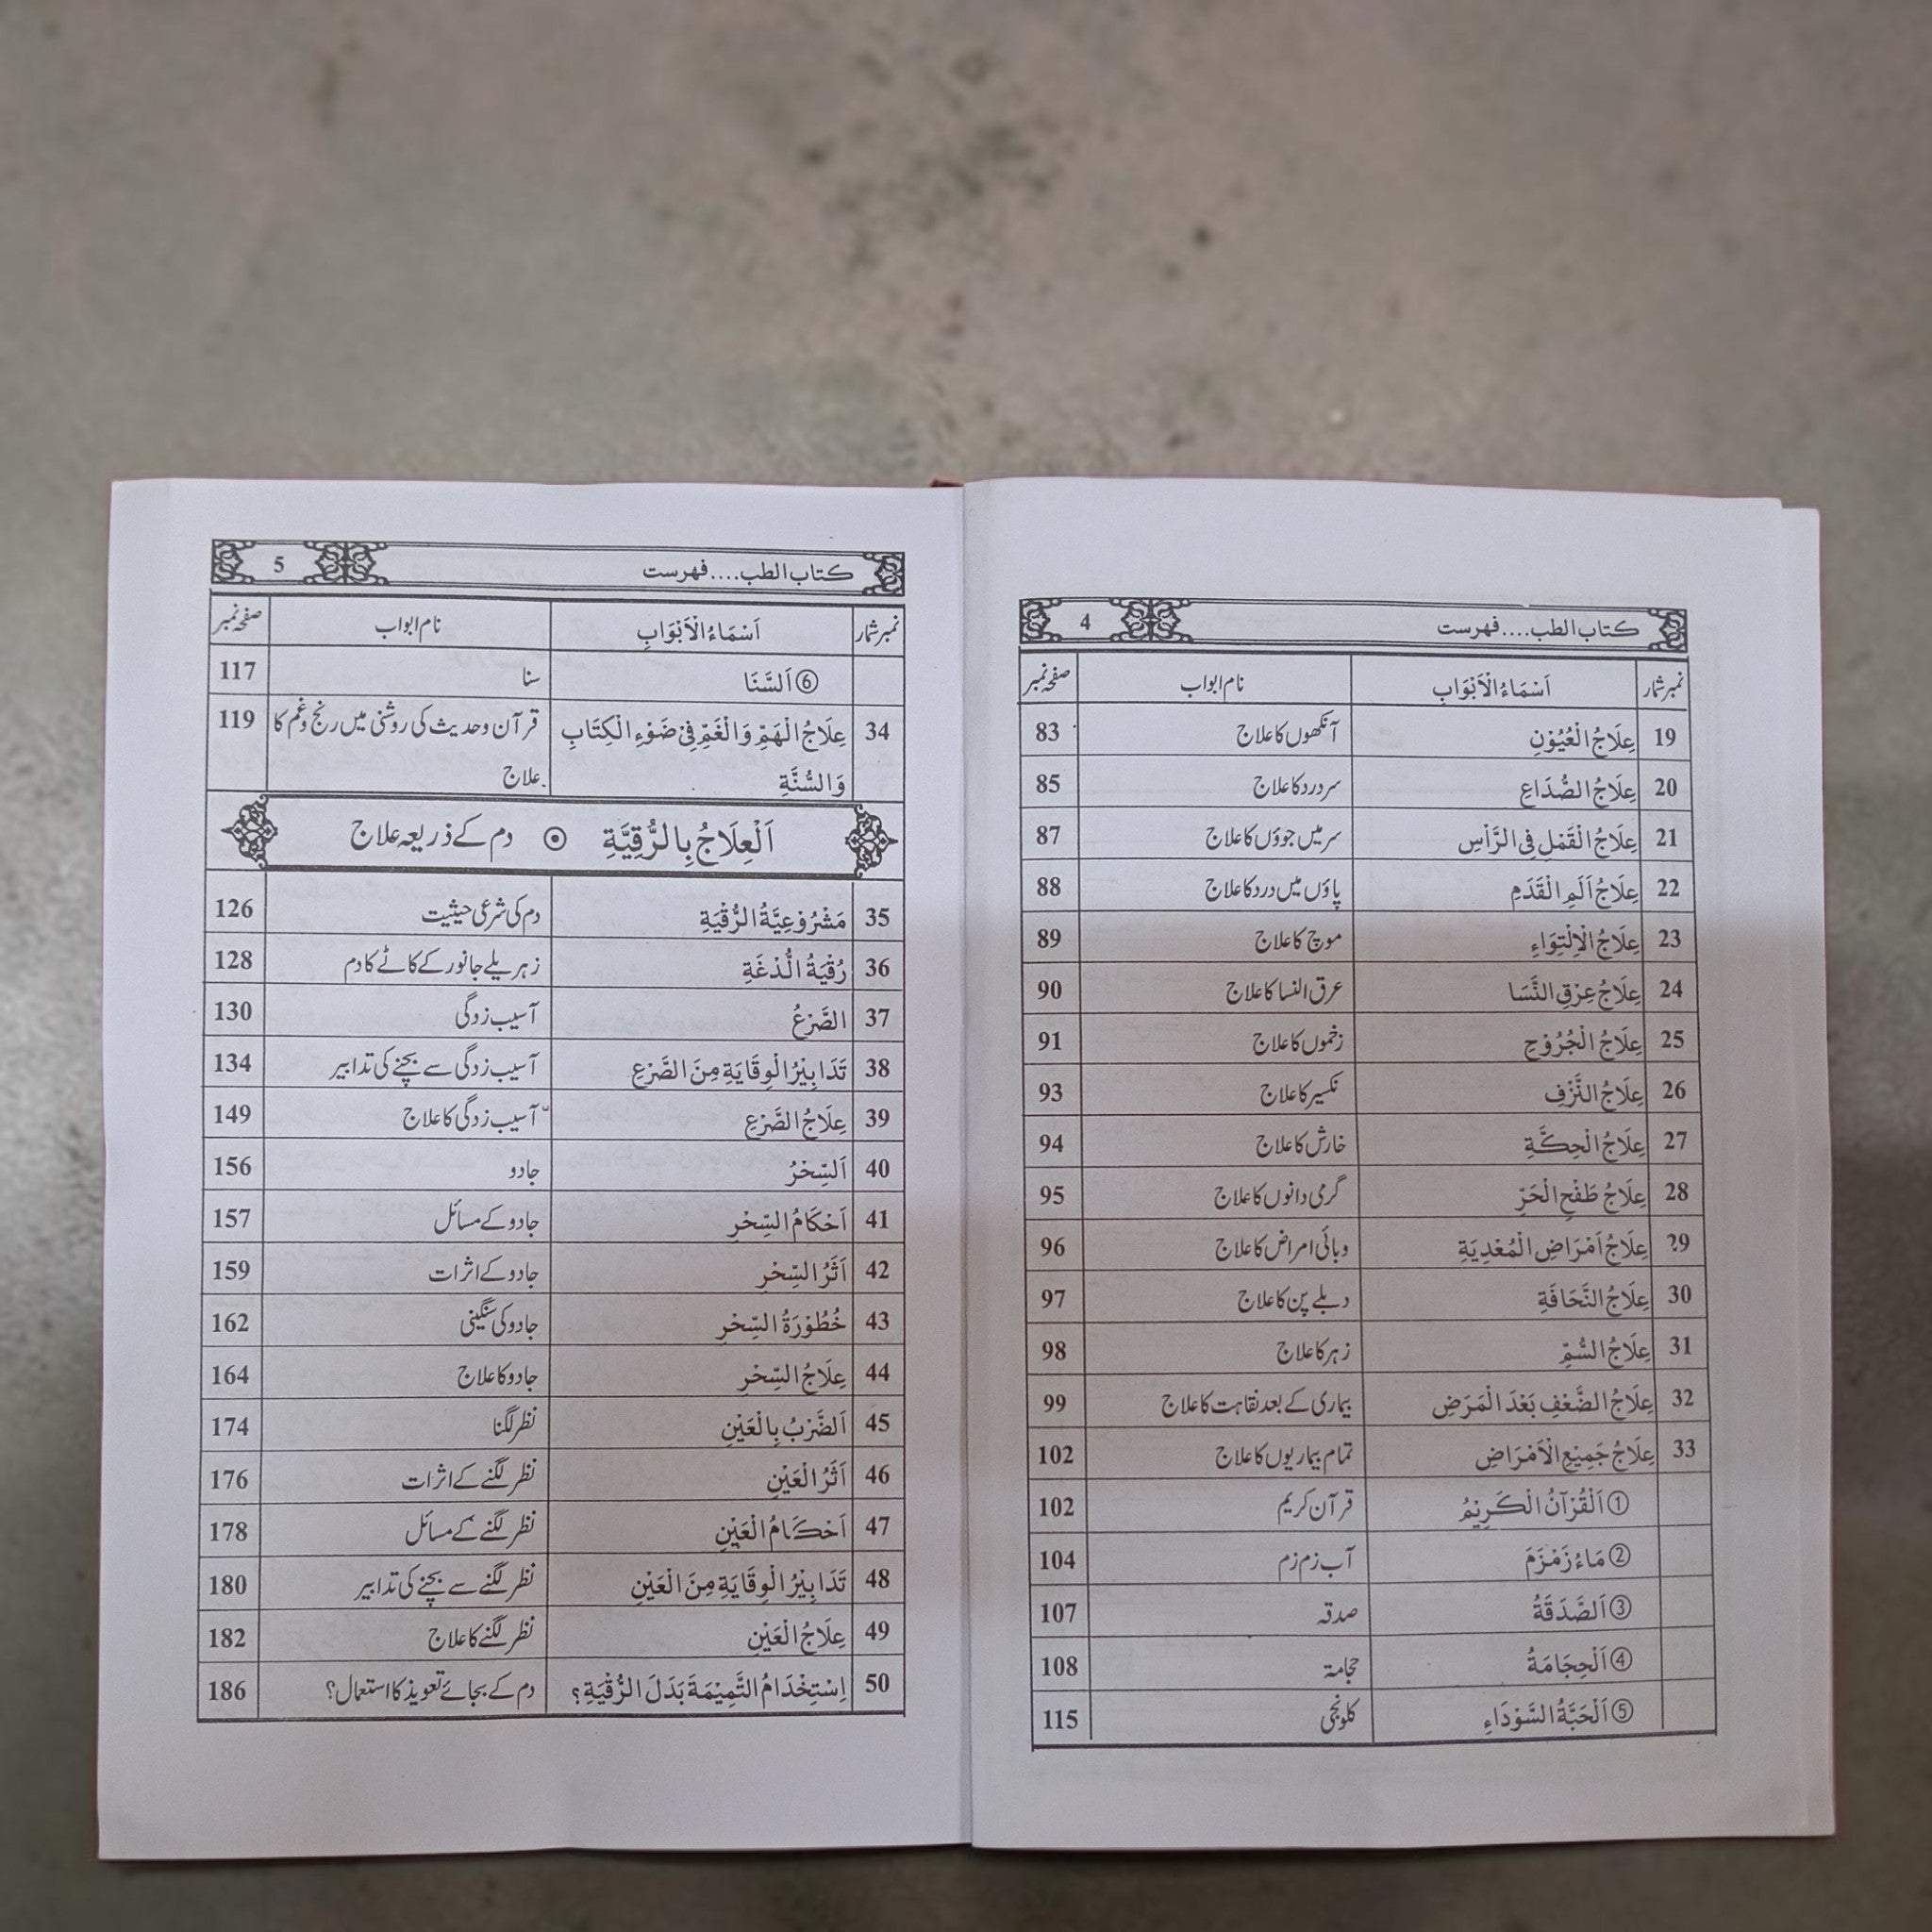 کتاب الطب.... فہرست 4
نمبر شمار اَسْمَاءُ الْاَبْوَابِ نام ابواب صفحہ نمبر
19 عِلَاجُ الْعُيُوْنِ آنکھوں کا علاج 83
20 عِلَاجُ الصُّدَاعِ سر درد کا علاج 85
21 عِلَاجُ الْقَمْلِ فِى الرَّأْسِ سر میں جوؤں کا علاج 87
22 عِلَاجُ اَلَمِ الْقَدَمِ پاؤں میں درد کا علاج 88
23 عِلَاجُ الْاِلْتِوَاءِ موچ کا علاج 89
24 عِلَاجُ عِرْقِ النَّسَا عرق النسا کا علاج 90
25 عِلَاجُ الْجُرُوْحِ زخموں کا علاج 91
26 عِلَاجُ النَّزْفِ نکسیر کا علاج 93
27 عِلَاجُ الْحِكَّةِ خارش کا علاج 94
28 عِلَاجُ طَفْحِ الْحَرِّ گرمی دانوں کا علاج 95
29 عِلَاجُ اَمْرَاضِ الْمُعْدِيَةِ وبائی امراض کا علاج 96
30 عِلَاجُ النَّحَافَةِ دبلے پن کا علاج 97
31 عِلَاجُ السُّمِّ زہر کا علاج 98
32 عِلَاجُ الضَّعْفِ بَعْدَ الْمَرَضِ بیماری کے بعد نقاہت کا علاج 99
33 عِلَاجُ جَمِيْعِ الْاَمْرَاضِ تمام بیماریوں کا علاج 102
① اَلْقُرْآنُ الْكَرِيْمُ قرآن کریم 102
② مَاءُ زَمْزَمَ آب زم زم 104
③ اَلصَّدَقَةُ صدقہ 107
④ اَلْحِجَامَةُ حجامۃ 108
⑤ اَلْحَبَّةُ السَّوْدَاءِ کلونجی 115
کتاب الطب.... فہرست 5
نمبر شمار اَسْمَاءُ الْاَبْوَابِ نام ابواب صفحہ نمبر
⑥ اَلسَّنَا سنا 117
34 عِلَاجُ الْهَمِّ وَالْغَمِّ فِىْ ضَوْءِ الْكِتَابِ قرآن و حدیث کی روشنی میں رنج و غم کا 119
وَالسُّنَّةِ علاج
اَلْعِلَاجُ بِالرُّقِيَّةِ ⊙ دم کے ذریعہ علاج
35 مَشْرُوْعِيَّةُ الرُّقْيَةِ دم کی شرعی حیثیت 126
36 رُقْيَةُ الُّدْغَةِ زہریلے جانور کے کاٹے کا دم 128
37 الصَّرْعُ آسیب زدگی 130
38 تَدَابِيْرُ الْوِقَايَةِ مِنَ الصَّرْعِ آسیب زدگی سے بچنے کی تدابیر 134
39 عِلَاجُ الصَّرْعِ آسیب زدگی کا علاج 149
40 اَلسِّحْرُ جادو 156
41 اَحْكَامُ السِّحْرِ جادو کے مسائل 157
42 اَثَرُ السِّحْرِ جادو کے اثرات 159
43 خُطُوْرَةُ السِّحْرِ جادو کی سنگینی 162
44 عِلَاجُ السِّحْرِ جادو کا علاج 164
45 اَلضَّرْبُ بِالْعَيْنِ نظر لگنا 174
46 اَثَرُ الْعَيْنِ نظر لگنے کے اثرات 176
47 اَحْكَامُ الْعَيْنِ نظر لگنے کے مسائل 178
48 تَدَابِيْرُ الْوِقَايَةِ مِنَ الْعَيْنِ نظر لگنے سے بچنے کی تدابیر 180
49 عِلَاجُ الْعَيْنِ نظر لگنے کا علاج 182
50 اِسْتِخْدَامُ التَّمِيْمَةَ بَدَلَ الرُّقْيَةِ؟ دم کے بجائے تعویذ کا استعمال؟ 186